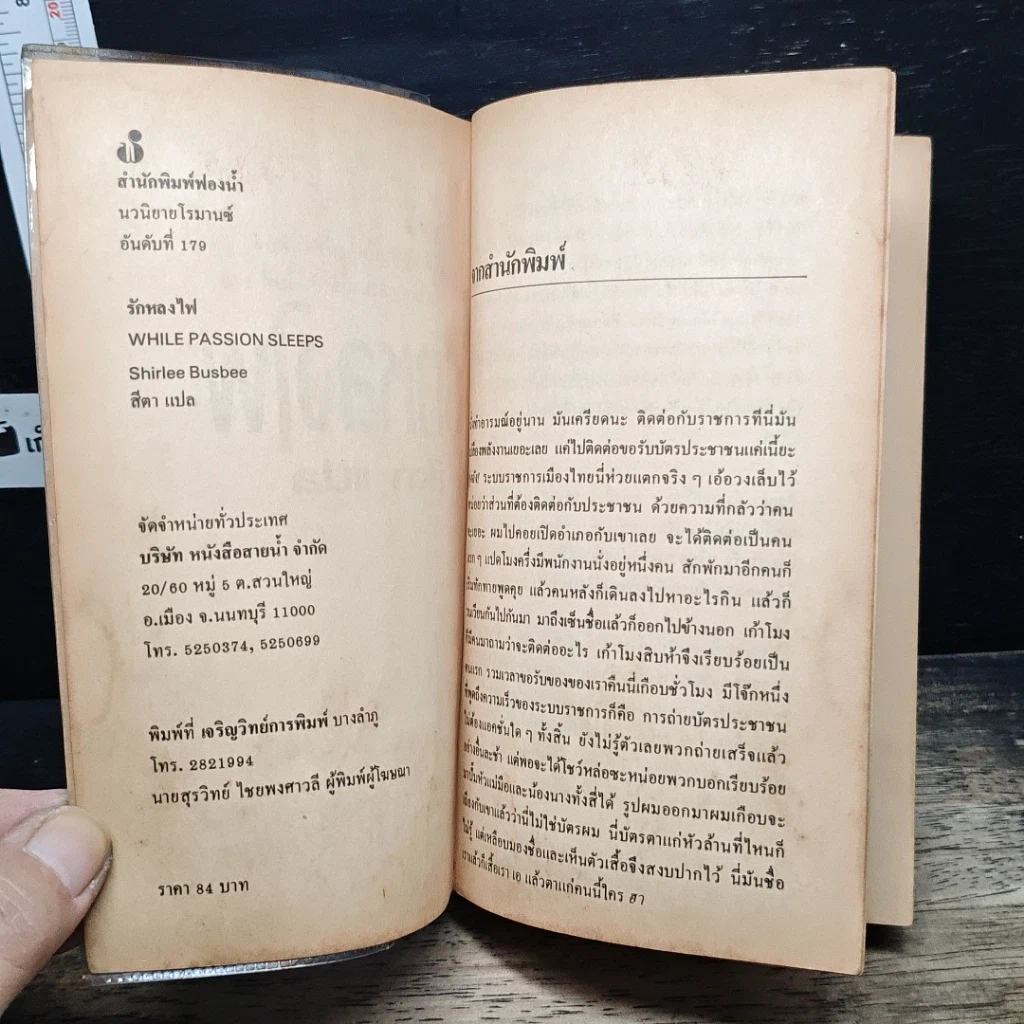 สำนักพิมพ์ฟองน้ำ
นวนิยายโรมานซ์
อันดับที่ 179
รักหลงไฟ
WHILE PASSION SLEEPS
Shirlee Busbee
สีตา แปล
จัดจำหน่ายทั่วประเทศ
บริษัท หนังสือสายน้ำ จำกัด
20/60 หมู่ 5 ต.สวนใหญ่
อ.เมือง จ.นนทบุรี 11000
โทร. 5250374, 5250699
พิมพ์ที่ เจริญวิทย์การพิมพ์ บางลำภู
โทร. 2821994
นายสุรวิทย์ ไชยพงศาวลี ผู้พิมพ์ผู้โฆษณา
ราคา 84 บาท
จากสำนักพิมพ์
อารมณ์อยู่นาน มันเครียดนะ ติดต่อกับราชการทีนี่มัน
เปลืองพลังงานเยอะเลย แค่ไปติดต่อขอรับบัตรประชาชนแค่เนี้ยะ
ระบบราชการเมืองไทยนี่ห่วยแตกจริง ๆ เอ้อวงเล็บไว้
หน่อยว่าส่วนที่ต้องติดต่อกับประชาชน ด้วยความที่กลัวว่าคน
จะเยอะ ผมไปคอยเปิดอำเภอกับเขาเลย จะได้ติดต่อเป็นคน
แรก ๆ แปดโมงครึ่งมีพนักงานนั่งอยู่หนึ่งคน สักพักมาอีกคนก็
ทักทายพูดคุย แล้วคนหลังก็เดินลงไปหาอะไรกิน แล้วก็
วนเวียนกันไปกันมา มาถึงเซ็นชื่อแล้วก็ออกไปข้างนอก เก้าโมง
ก็มีคนมาถามว่าจะติดต่ออะไร เก้าโมงสิบห้าจึงเรียบร้อยเป็น
คนแรก รวมเวลาขอรับของของเราคืนนี่เกือบชั่วโมง มีโจ๊กหนึ่ง
ที่พูดถึงความเร็วของระบบราชการก็คือ การถ่ายบัตรประชาชน
ไม่ต้องแอคชั่นใด ๆ ทั้งสิ้น ยังไม่รู้ตัวเลยพวกถ่ายเสร็จแล้ว
อย่างอื่นละช้า แต่พอจะได้โชว์หล่อซะหน่อยพวกบอกเรียบร้อย
หัวแม่มือและน้องนางทั้งสี่ได้ รูปผมออกมาผมเกือบจะ
เถียงกับเขาแล้วว่านี่ไม่ใช่บัตรผม นี่บัตรตาแก่หัวล้านที่ไหนก็
ไม่รู้ แต่เหลือบมองชื่อและเห็นตัวเสื้อจึงสงบปากไว้ นี่มันชื่อ
เราแล้วก็เสื้อเรา เอ แล้วตาแก่คนนี้ใคร ฮา